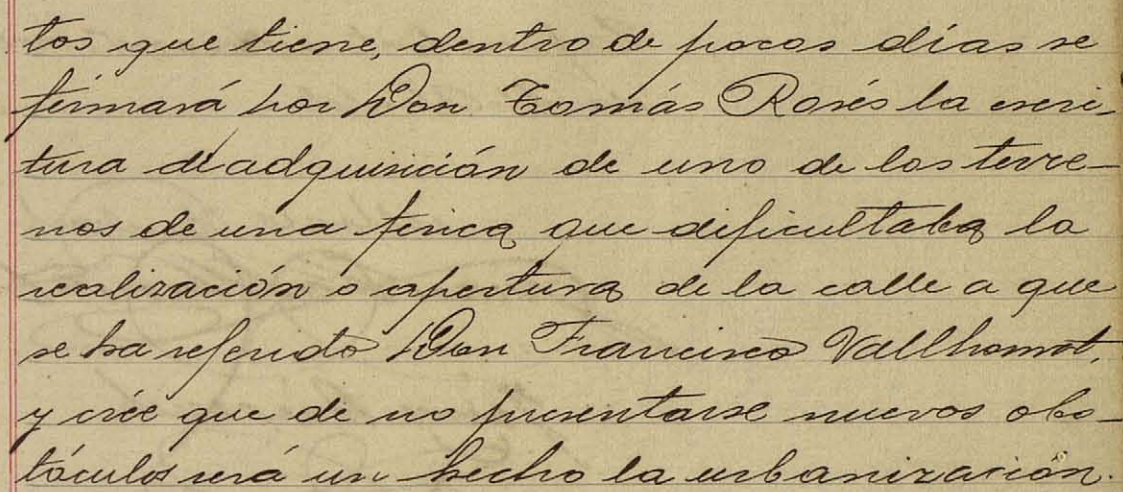 tos que tiene, dentro de pocos días se
firmará por Don Tomás Rosés la escri-
tura de adquisición de uno de los terre-
nos de una finca que dificultaba la
realización o apertura de la calle a que
se ha referido Don Francisco Vallhomat,
y crée que de no presentarse nuevos obs-
táculos será un hecho la urbanización.